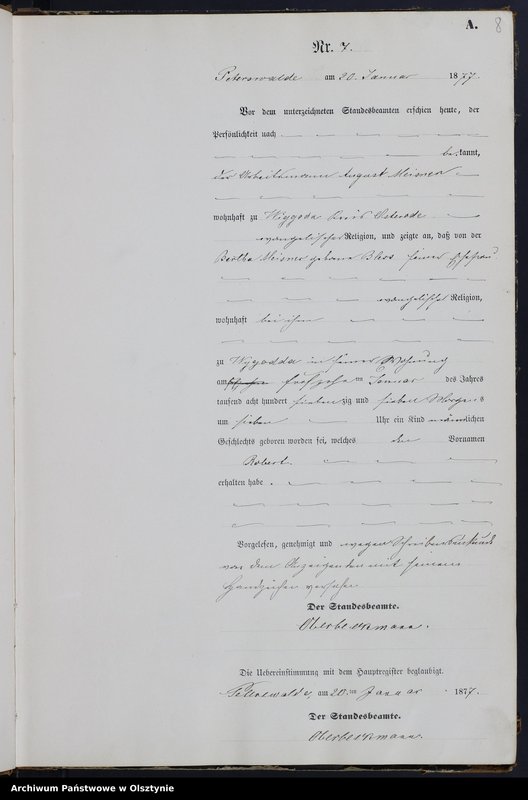 A. 8
Nr. 7.
Peterswalde am 20. Januar 1877.
Vor dem unterzeichneten Standesbeamten erschien heute, der
Persönlichkeit nach
bekannt,
der Arbeitsmann August Meisner
wohnhaft zu Wygoda Kreis Osterode
evangelischer Religion, und zeigte an, daß von der
Bertha Meisner geborne seiner Ehefrau
evangelischer Religion,
wohnhaft bei ihm
zu Wygodda in seiner Wohnung
am Januar des Jahres
tausend acht hundert siebenzig und sieben Morgens
um sieben Uhr ein Kind männlichen
Geschlechts geboren worden sei, welches den Vornamen
Robert
erhalten habe.
Vorgelesen, genehmigt und wegen Schreibensunkunde
von dem Anzeigenden mit seinem
Handzeichen versehen
Der Standesbeamte.
Oberbeckmann.
Die Uebereinstimmung mit dem Hauptregister beglaubigt.
Peterswalde, am 20. ten Januar 1877.
Der Standesbeamte.
Oberbeckmann.
Archiwum Państwowe w Olsztynie